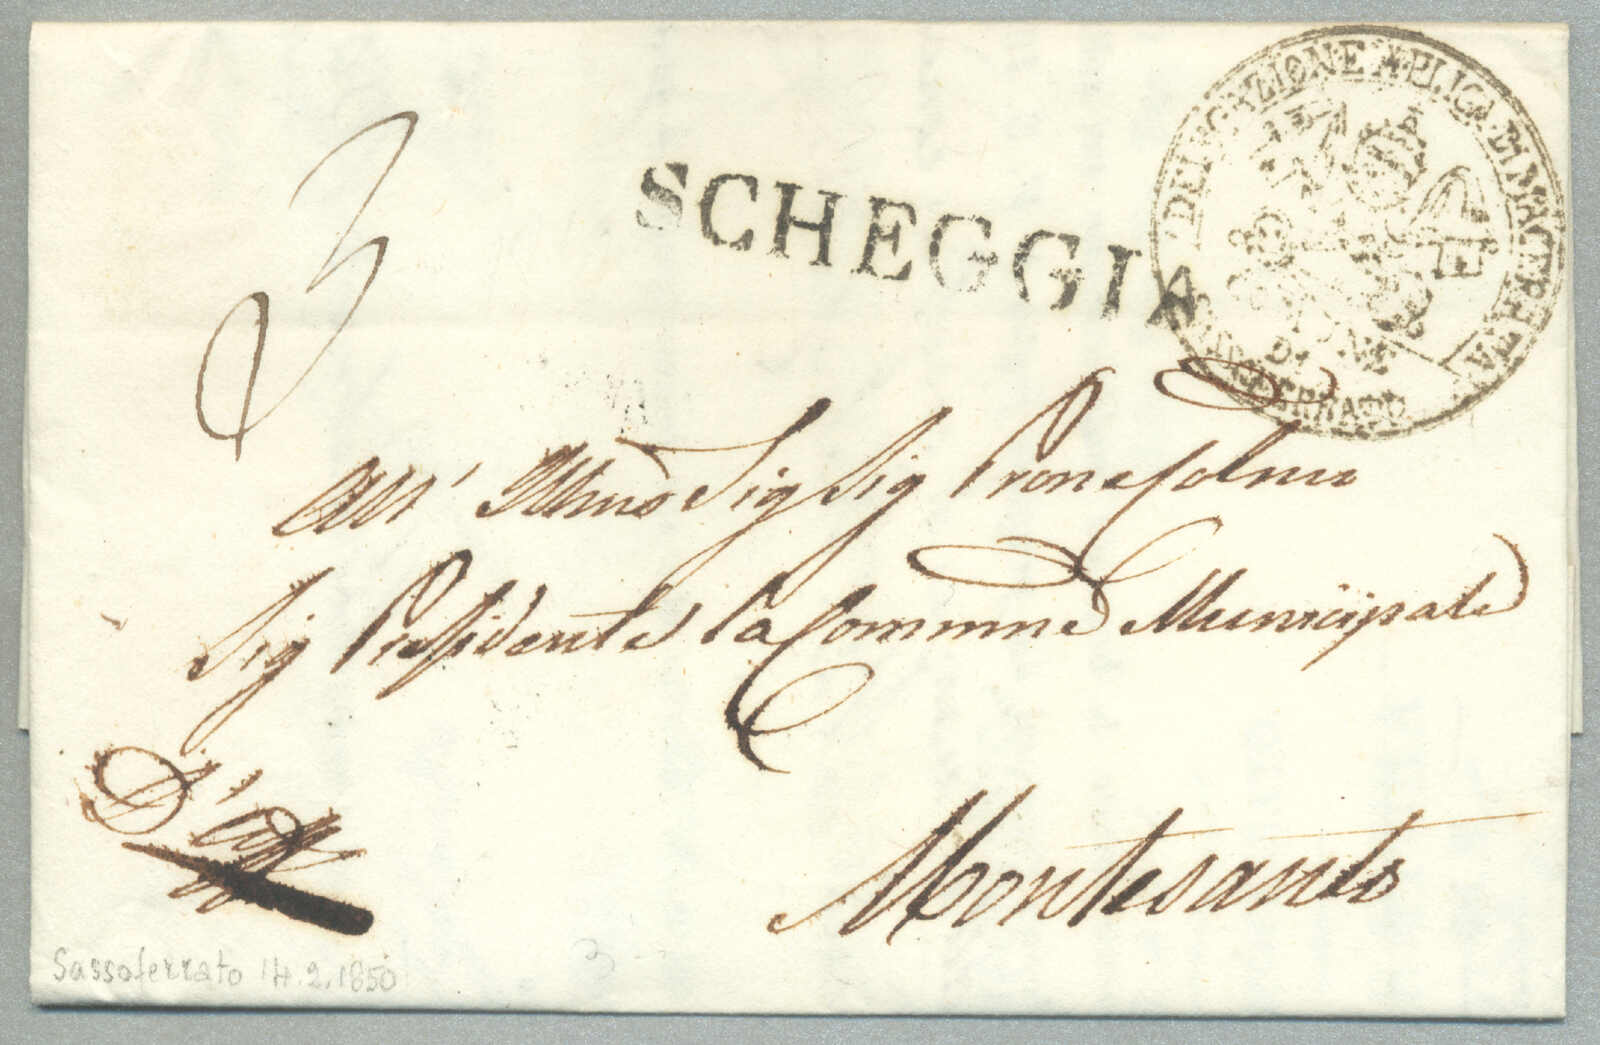 3
SCHEGGIA
DELEGAZIONE APLICA DI MACERATA
SASSOFERRATO
All' Illmo Sig Sig Prone Colmo
Sig Presidente la Comune Municipale
D'Uff
Montesanto
Sassoferrato 14.2.1850
3